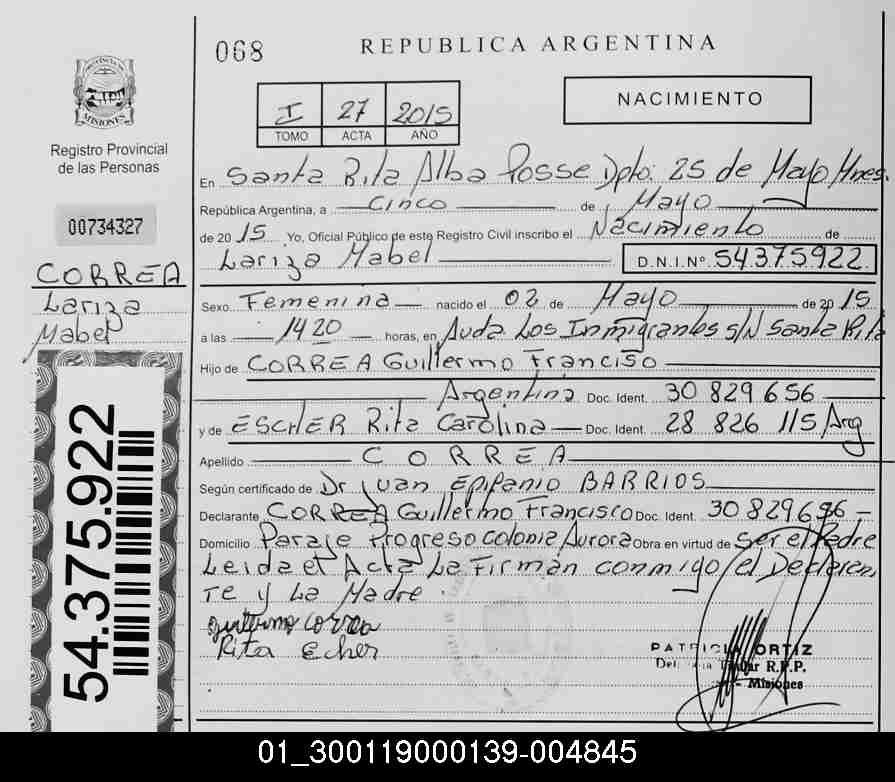 068 REPUBLICA ARGENTINA
PROVINCIA DE
MISIONES
Registro Provincial
de las Personas
00734327
CORREA
Lariza
Mabel
54.375.922
I 27 2015
TOMO ACTA AÑO
NACIMIENTO
En Santa Rita Alba Posse Dpto: 25 de Mayo Mnes.
República Argentina, a Cinco de Mayo
de 2015 Yo, Oficial Público de este Registro Civil inscribo el Nacimiento de
Lariza Mabel D.N.I.Nº 54.375.922
Sexo Femenina nacido el 02 de Mayo de 2015
a las 1420 horas, en Avda Los Inmigrantes s/N Santa Rita
Hijo de CORREA Guillermo Franciso
Argentina Doc. Ident. 30 829 656
y de ESCHER Rita Carolina Doc. Ident. 28 826 115 Arg
Apellido CORREA
Según certificado de Dr Juan Epifanio BARRIOS
Declarante CORREA Guillermo Francisco Doc. Ident. 30 829 656
Domicilio Paraje Progreso Colonia Aurora Obra en virtud de ser el Padre
Leida el Acta La Firman conmigo el Declaren
te y La Madre.
guillermo correa
Rita Echer
PATRICIA ORTIZ
Titular R.P.P.
Misiones
01_300119000139-004845